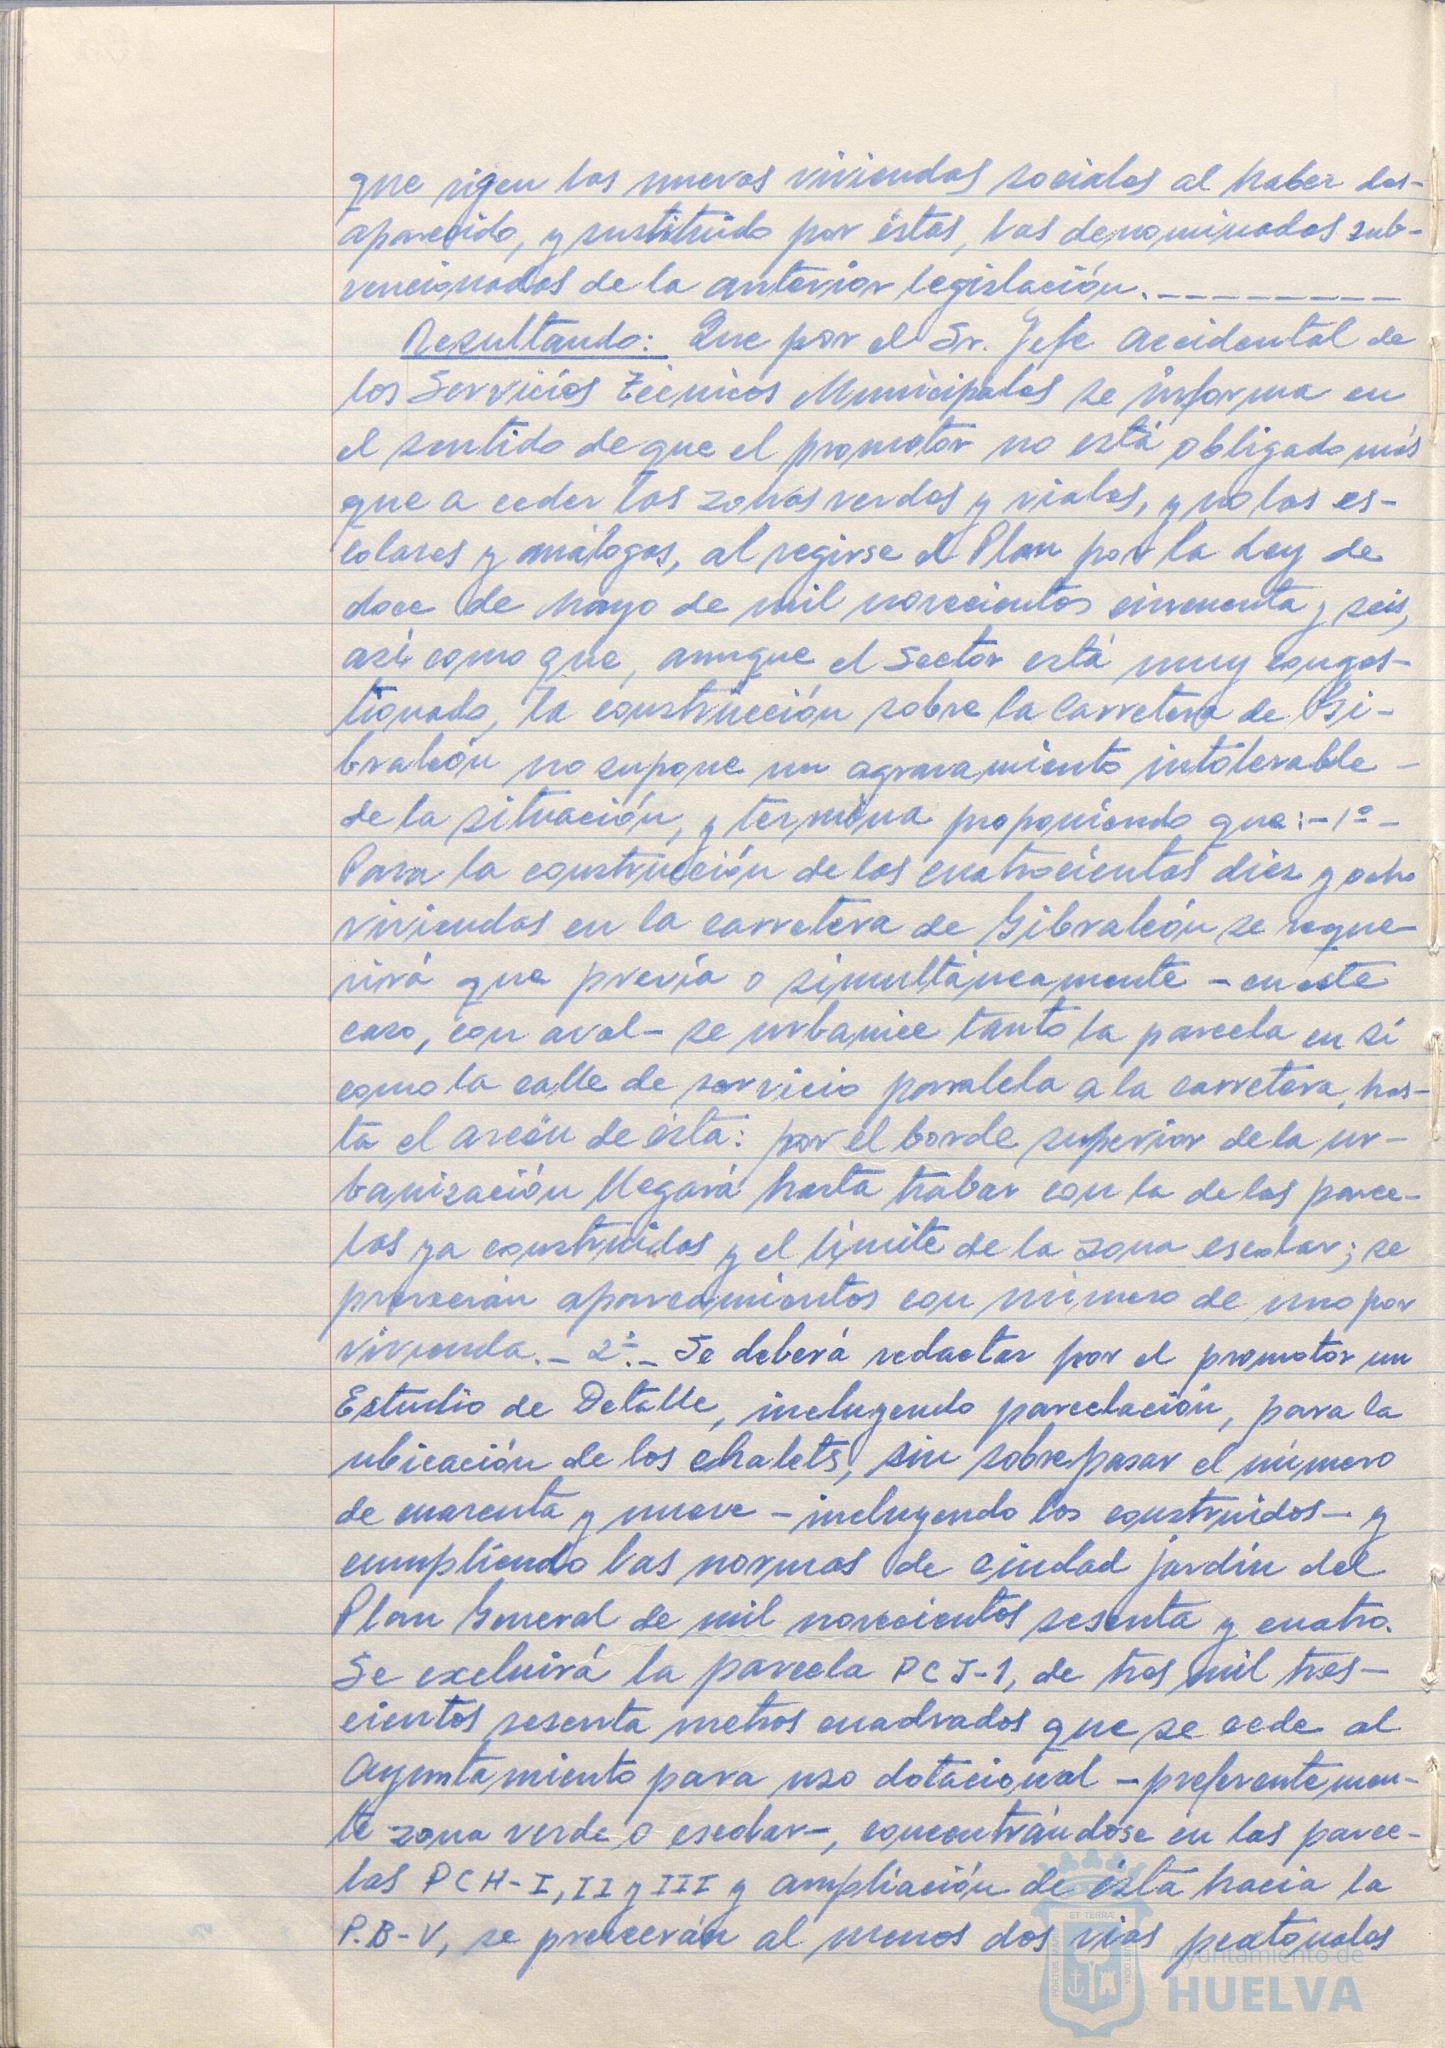 que rigen las nuevas viviendas sociales al haber des-
aparecido, y sustituido por éstas, las denominadas sub-
vencionadas de la anterior legislación.
Resultando: Que por el Sr. Jefe Accidental de
los Servicios Técnicos Municipales se informa en
el sentido de que el promotor no está obligado más
que a ceder las zonas verdes y viales, y no las es-
colares y análogas, al regirse el Plan por la Ley de
doce de Mayo de mil novecientos cincuenta y seis,
así como que, aunque el Sector está muy conges-
tionado, la construcción sobre la Carretera de Gi-
braleón no supone un agravamiento intolerable -
de la situación, y termina proponiendo que:- 1º -
Para la construcción de las cuatrocientas diez y ocho
viviendas en la carretera de Gibraleón se reque-
rirá que previa o simultáneamente - en este
caso, con aval - se urbanice tanto la parcela en sí
como la calle de servicio paralela a la carretera, has-
ta el arcén de ésta: por el borde superior de la ur-
banización llegará hasta trabar con la de las parce-
las ya construidas y el límite de la zona escolar; se
preveerán aparcamientos con número de uno por
vivienda. - 2º. - Se deberá redactar por el promotor un
Estudio de Detalle, incluyendo parcelación, para la
ubicación de los chalets, sin sobrepasar el número
de cuarenta y nueve - incluyendo los construidos - y
cumpliendo las normas de ciudad jardín del
Plan General de mil novecientos sesenta y cuatro.
Se excluirá la parcela PCJ-1, de tres mil tres-
cientos sesenta metros cuadrados que se cede al
Ayuntamiento para uso dotacional - preferentemen-
te zona verde o escolar -, concentrándose en las parce-
las PCH-I, II y III y ampliación de ésta hacia la
P.B-V, se preveerán al menos dos vías peatonales
ET TERRAE
Ayuntamiento de
HUELVA